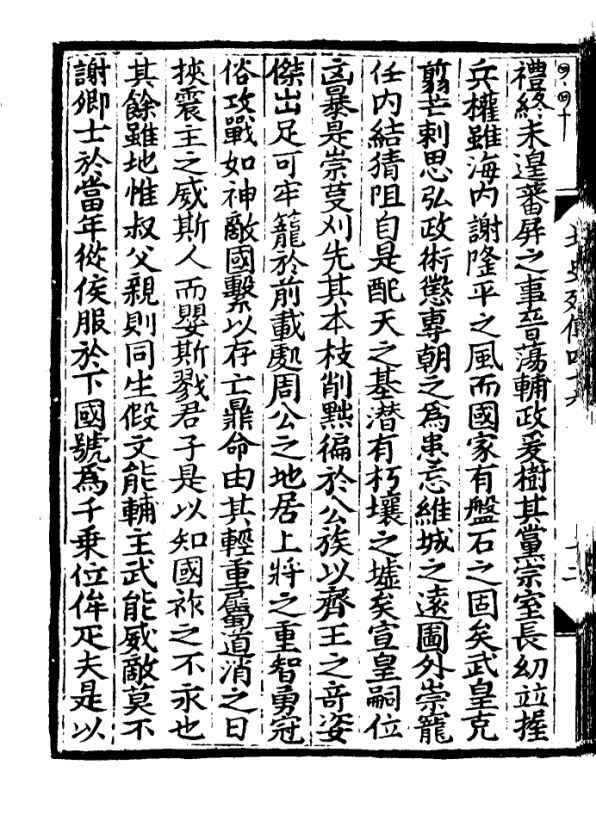 禮終未遑蕃屏之事晉蕩輔政爰樹其黨宗室長幼竝握
兵權雖海内謝隆平之風而國家有盤石之固矣武皇克
翦芒刺思弘政術懲專朝之為患忘維城之遠圖外崇寵
任内結猜阻自是配天之基潜有朽壤之墟矣宣皇嗣位
凶暴是崇芟刈先其本枝削黜徧於公族以齊王之奇姿
傑出足可牢籠於前載處周公之地居上將之重智勇冠
俗攻戰如神敵國繫以存亡鼎命由其輕重屬道消之日
挾震主之威斯人而嬰斯戮君子是以知國祚之不永也
其餘雖地惟叔父親則同生假文能輔主武能威敵莫不
謝卿士於當年從侯服於下國號為千乗位侔疋夫是以